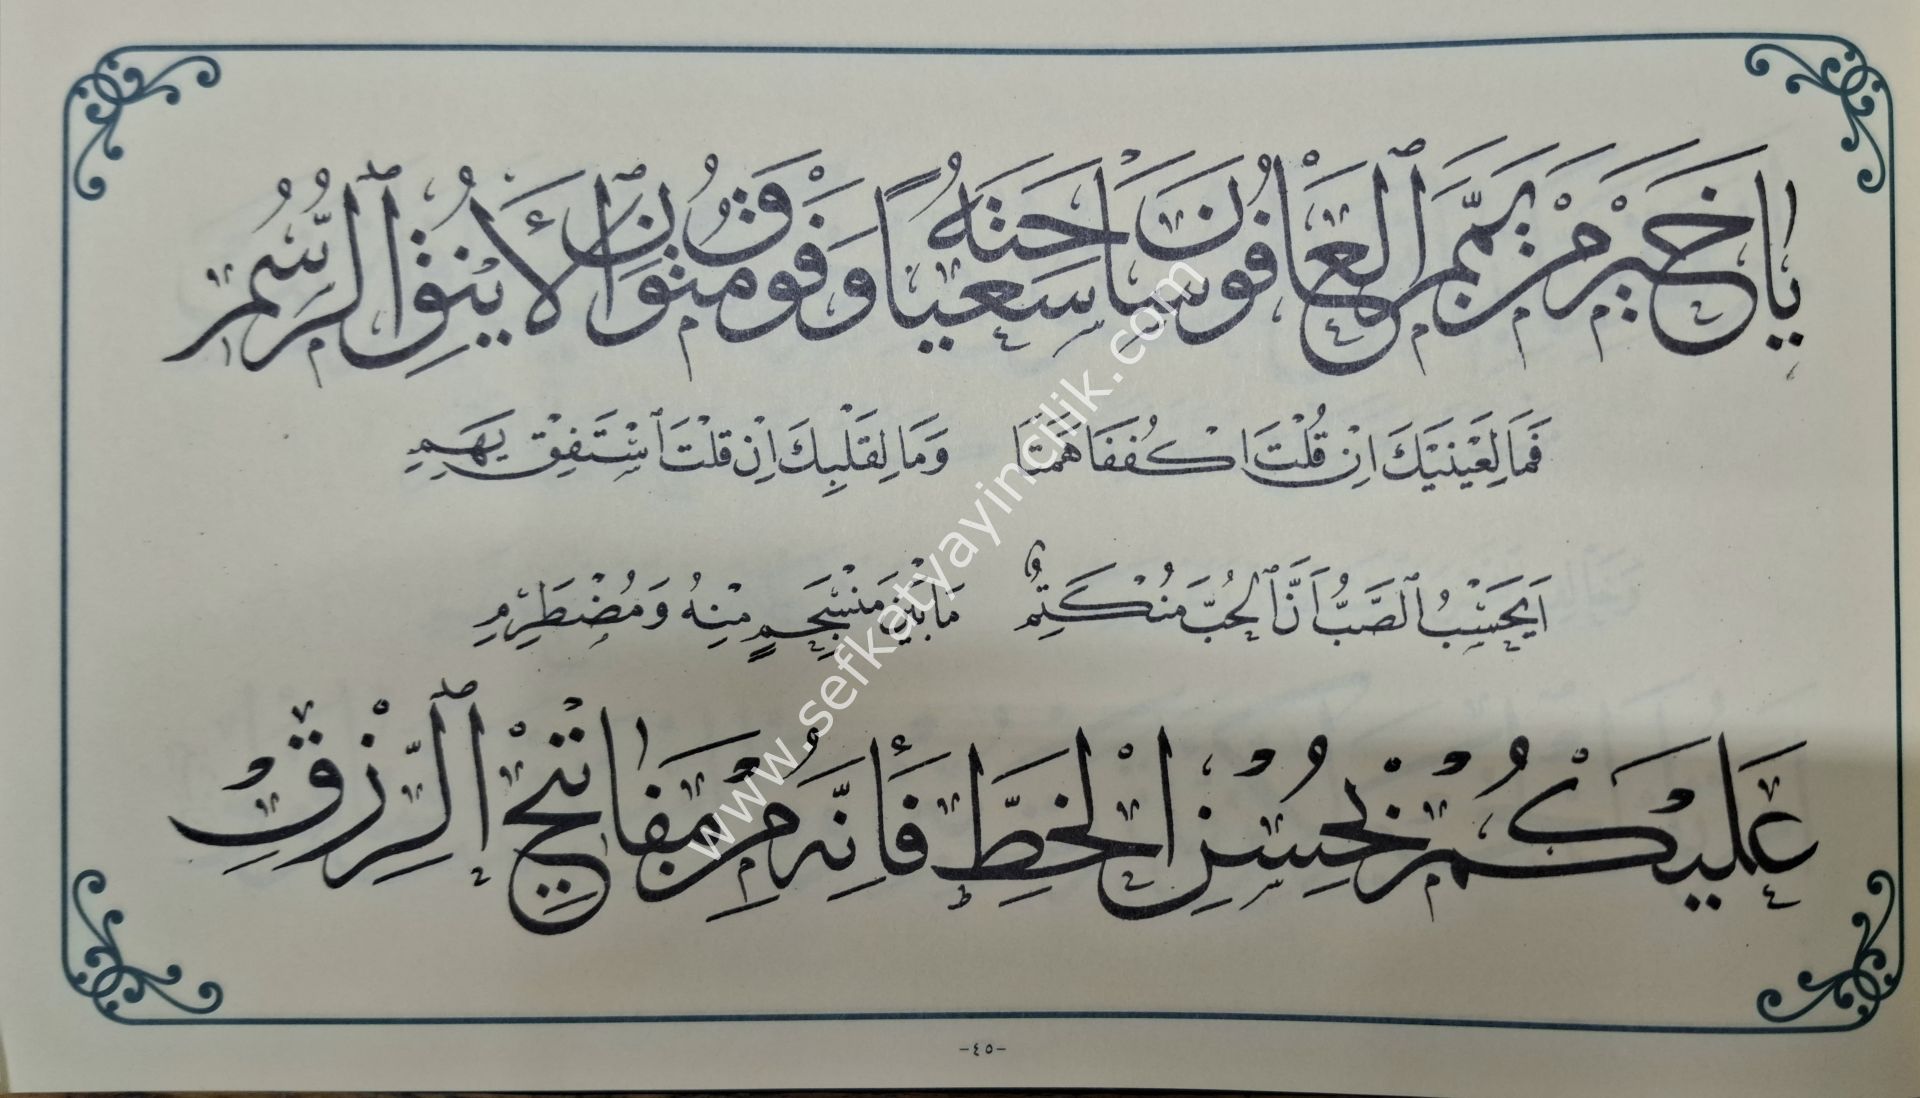 يَا خَيْرَ مَنْ يَمَّمَ ٱلْعَافُونَ سَاحَتَهُ سَعْيًا وَفَوْقَ مُتُونِ ٱلْأَيْنُقِ ٱلرُّسُمِ
فَمَا لِعَيْنَيْكَ اِنْ قُلْتَ اكْفُفَا هَمَتَا وَمَا لِقَلْبِكَ اِنْ قُلْتَ ٱسْتَفِقْ يَهِمِ
اَيَحْسَبُ ٱلصَّبُّ اَنَّ ٱلْحُبَّ مُنْكَتِمٌ مَا بَيْنَ مُنْسَجِمٍ مِنْهُ وَمُضْطَرِمِ
عَلَيْكُمْ بِحُسْنِ الْخَطِّ فَأِنَّهُ مِنْ مَفَاتِيحِ ٱلرِّزْقِ
-٤٥-
www.sefkatyayincilik.com